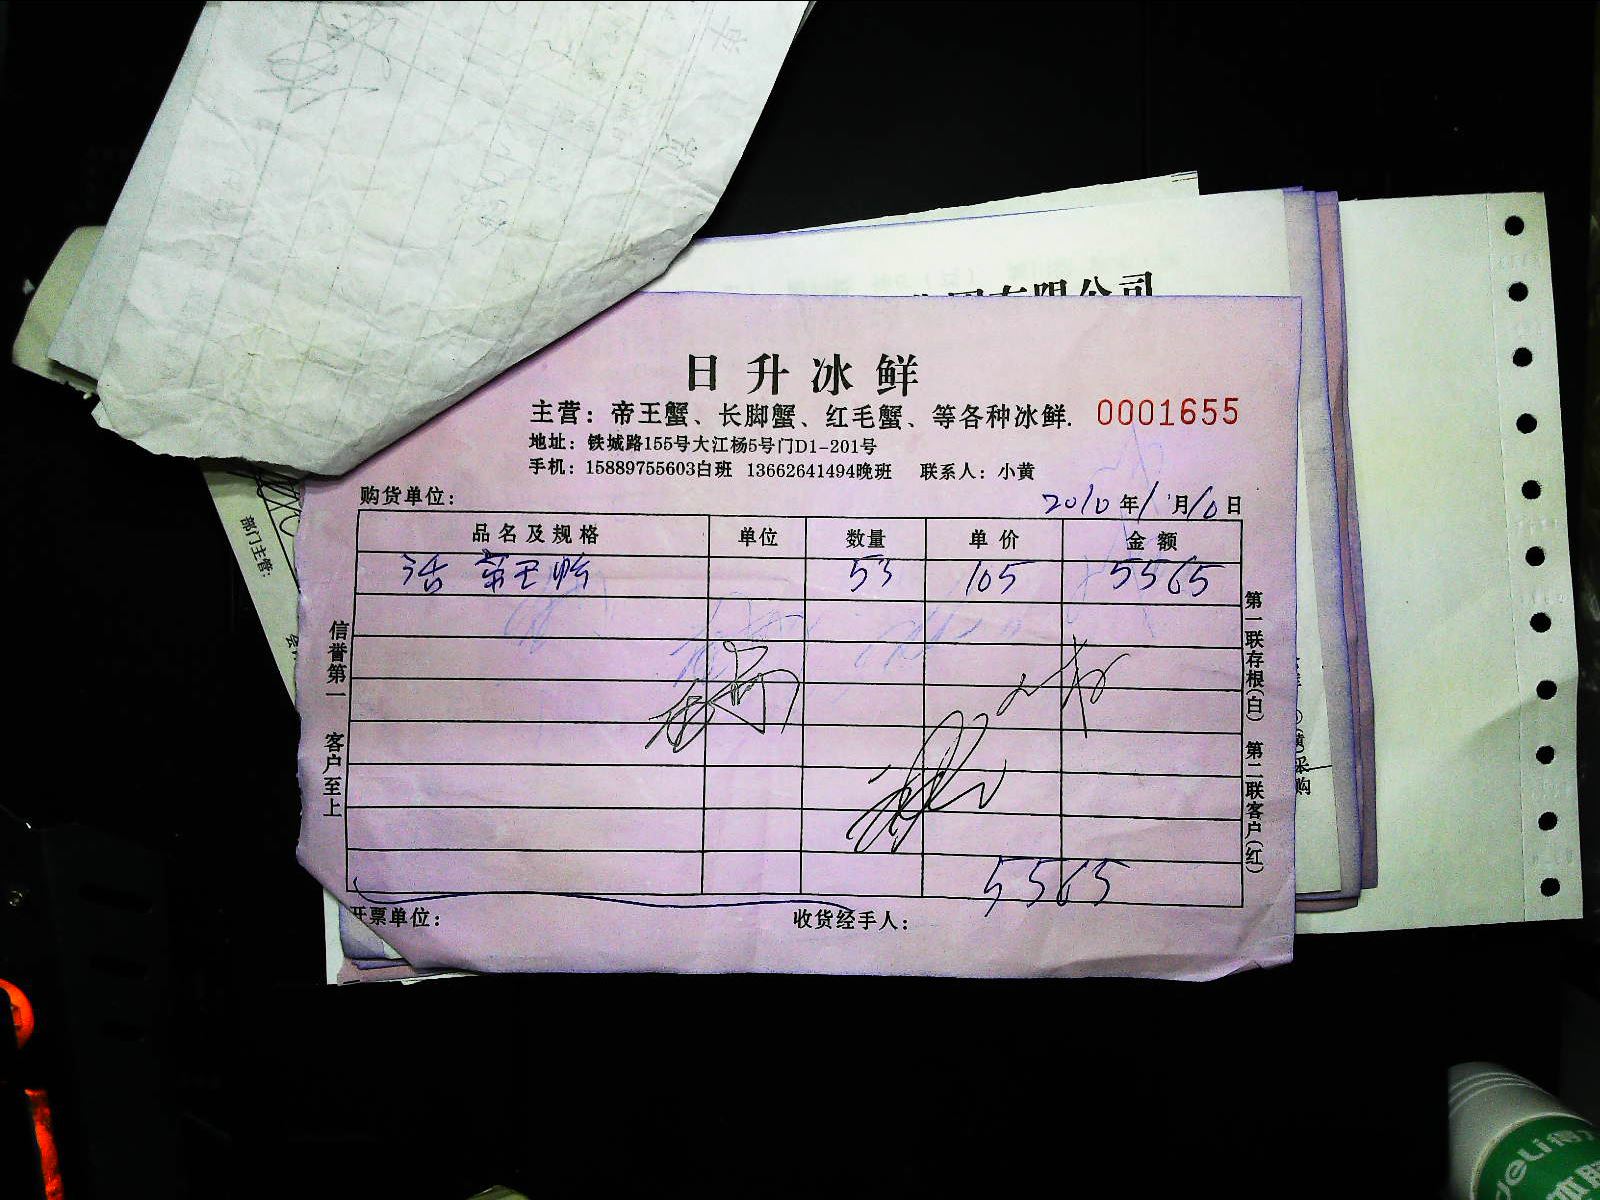 有限公司
日升冰鲜
主营：帝王蟹、长脚蟹、红毛蟹、等各种冰鲜. 0001655
地址：铁城路155号大江杨5号门D1-201号
手机：15889755603白班 13662641494晚班 联系人：小黄
购货单位： 2010年1月10日
品名及规格 单位 数量 单价 金额
活 帝王 53 105 5565
5565
开票单位： 收货经手人：
信誉第一 客户至上
第一联存根(白) 第二联客户(红)
部门主管：
采购
deli得